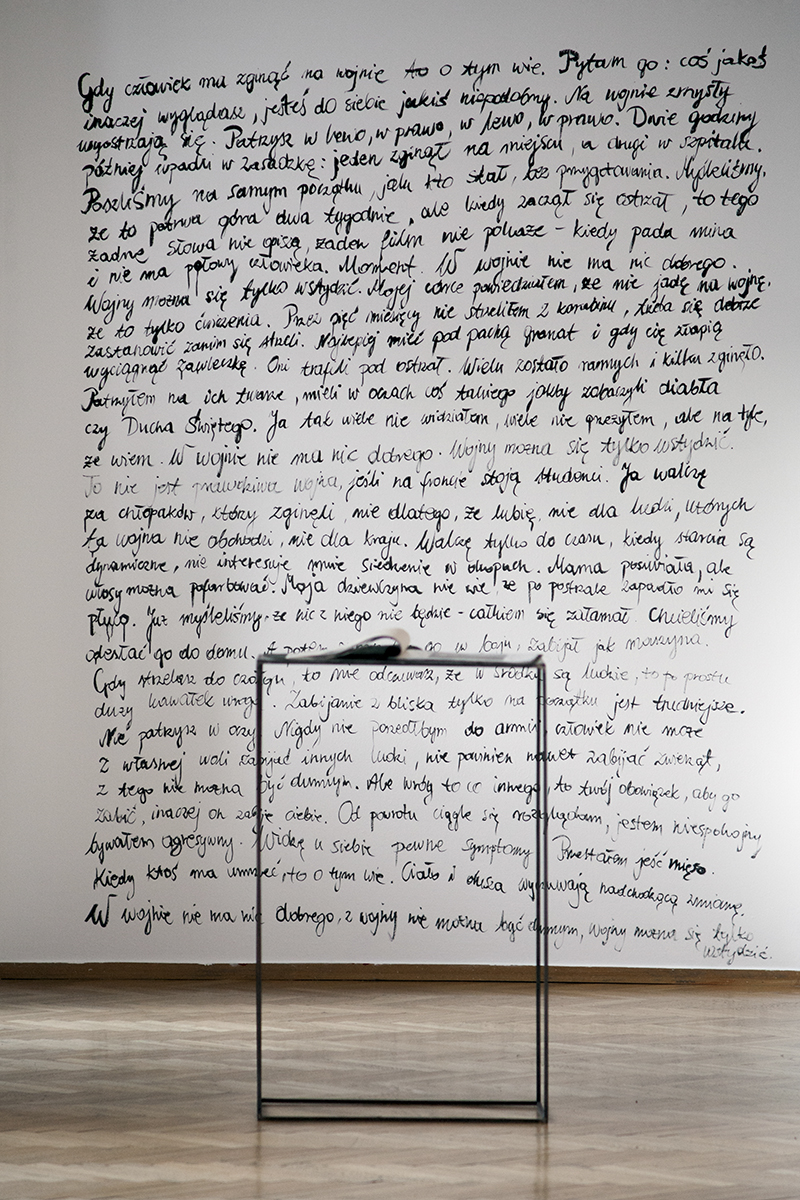 Gdy człowiek ma zginąć na wojnie to o tym wie. Pytam go: coś jakoś
inaczej wyglądasz, jesteś do siebie jakiś niepodobny. Na wojnie zmysły
wyostrzają się. Patrzysz w lewo, w prawo, w lewo, w prawo. Dwie godziny
później wpadli w zasadzkę: jeden zginął na miejscu, a drugi w szpitalu.
Poszliśmy na samym początku, jak kto stał, bez przygotowania. Myśleliśmy,
że to potrwa góra dwa tygodnie, ale kiedy zaczął się ostrzał, to tego
żadne słowa nie opiszą, żaden film nie pokaże - kiedy pada mina
i nie ma połowy człowieka. Moment. W wojnie nie ma nic dobrego.
Wojny można się tylko wstydzić. Mojej córce powiedziałem, że nie jadę na wojnę,
że to tylko ćwiczenia. Przez pięć miesięcy nie strzeliłem z karabinu, trzeba się dobrze
zastanowić zanim się strzeli. Najlepiej mieć pod pachą granat i gdy cię złapią
wyciągnąć zawleczkę. Oni trafili pod ostrzał. Wielu zostało rannych i kilku zginęło.
Patrzyłem na ich twarze, mieli w oczach coś takiego jakby zobaczyli diabła
czy Ducha Świętego. Ja tak wiele nie widziałem, wiele nie przeżyłem, ale na tyle,
że wiem. W wojnie nie ma nic dobrego. Wojny można się tylko wstydzić.
To nie jest prawdziwa wojna, jeśli na froncie stoją studenci. Ja walczę
za chłopaków, którzy zginęli, nie dlatego, że lubię, nie dla ludzi, których
ta wojna nie obchodzi, nie dla kraju. Walczę tylko do czasu, kiedy starcia są
dynamiczne, nie interesuje mnie siedzenie w okopach. Mama posiwiała, ale
włosy można pofarbować. Moja dziewczyna nie wie, że po postrzale zapadło mi się
płuco. Już myśleliśmy, że nic z niego nie będzie - całkiem się załamał. Chcieliśmy
odesłać go do domu. A go w boju, zabijał jak maszyna.
Gdy strzelasz do czołgu, to nie odczuwasz, że w środku są ludzie, to po prostu
duży kawałek wroga. Zabijanie z bliska tylko na początku jest trudniejsze.
Nie patrzysz w oczy. Nigdy nie poszedłbym do armii, człowiek nie może
z własnej woli zabijać innych ludzi, nie powinien nawet zabijać zwierząt,
z tego nie można być dumnym. Ale wróg to co innego, to twój obowiązek, aby go
zabić, inaczej on zabije ciebie. Od powrotu ciągle się rozglądam, jestem niespokojny
bywałem agresywny. Widzę u siebie pewne symptomy. Przestałem jeść mięso.
Kiedy ktoś ma umrzeć, to o tym wie. Ciało i dusza wyczuwają nadchodzącą zmianę.
W wojnie nie ma nic dobrego, z wojny nie można być dumnym, wojny można się tylko
wstydzić.